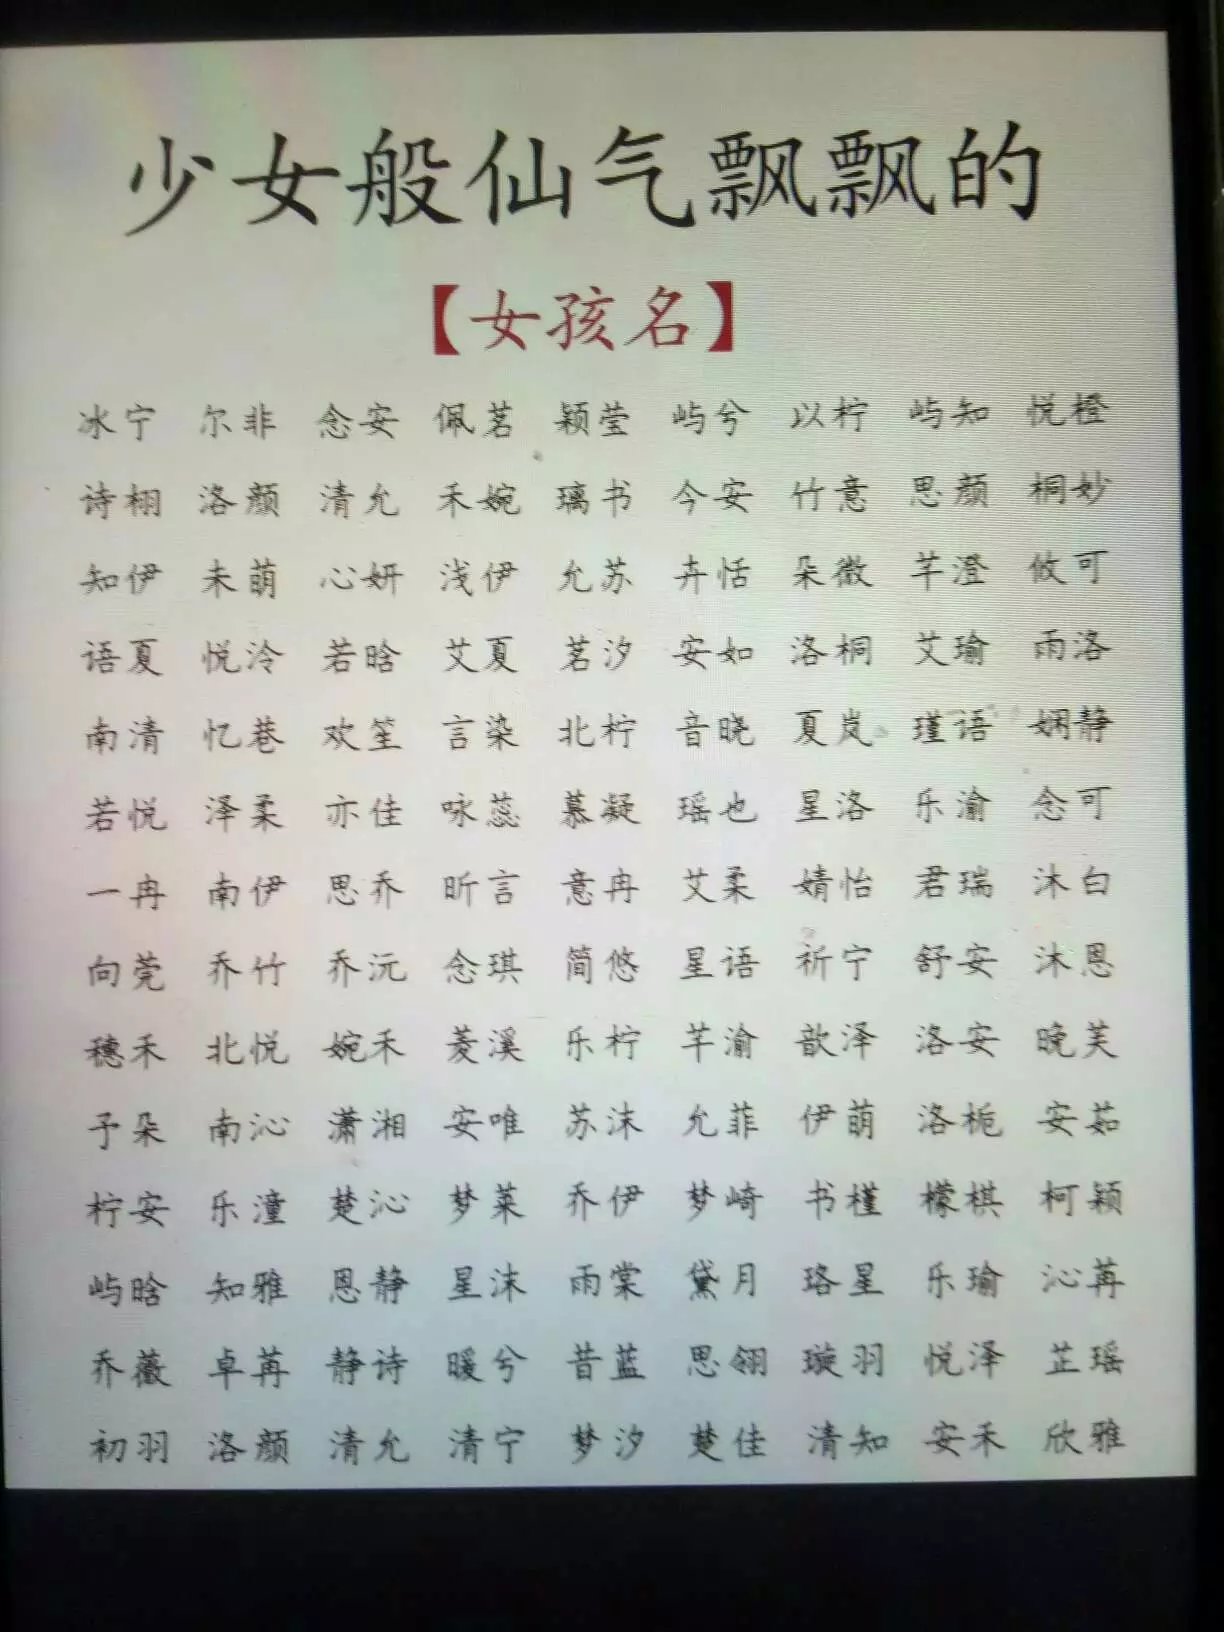 少女般仙气飘飘的
【女孩名】
冰宁 尔非 念安 佩茗 颖莹 屿兮 以柠 屿知 悦橙
诗栩 洛颜 清允 禾婉 璃书 今安 竹意 思颜 桐妙
知伊 未萌 心妍 浅伊 允苏 卉恬 朵微 芊澄 攸可
语夏 悦泠 若晗 艾夏 茗汐 安如 洛桐 艾瑜 雨洛
南清 忆巷 欢笙 言染 北柠 音晓 夏岚 瑾语 娴静
若悦 泽柔 亦佳 咏蕊 慕凝 瑶也 星洛 乐渝 念可
一冉 南伊 思乔 昕言 意冉 艾柔 婧怡 君瑞 沐白
向莞 乔竹 乔沅 念琪 简悠 星语 祈宁 舒安 沐恩
穗禾 北悦 婉禾 菱溪 乐柠 芊渝 歆泽 洛安 晚芙
予朵 南沁 潇湘 安唯 苏沫 允菲 伊萌 洛栀 安茹
柠安 乐潼 楚沁 梦莱 乔伊 梦崎 书槿 檬棋 柯颖
屿晗 知雅 恩静 星沫 雨棠 黛月 珞星 乐瑜 沁苒
乔薇 卓苒 静诗 暖兮 昔蓝 思翎 璇羽 悦泽 芷瑶
初羽 洛颜 清允 清宁 梦汐 楚佳 清知 安禾 欣雅